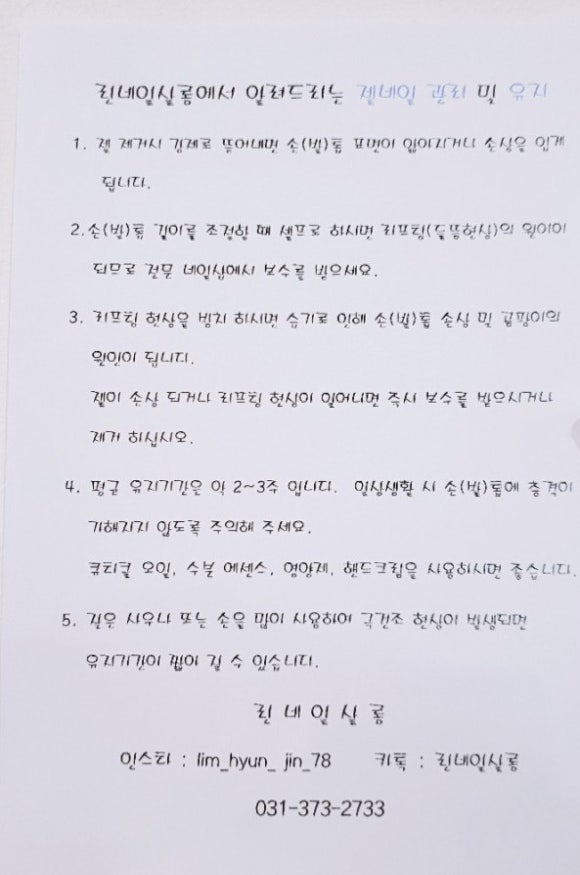 린네일살롱에서 알려드리는 젤네일 관리 및 유지
1. 젤 제거시 강제로 뜯어내면 손(발)톱 표면이 얇아지거나 손상을 입게
됩니다.
2.손(발)톱 길이를 조절할 때 셀프로 하시면 리프팅(들뜸현상)의 원이이
되므로 전문 네일샵에서 보수를 받으세요.
3. 리프팅 현상을 방치 하시면 습기로 인해 손(발)톱 손상 및 곰팡이의
원인이 됩니다.
젤이 손상 되거나 리프팅 현상이 일어나면 즉시 보수를 받으시거나
제거 하십시오.
4. 평균 유지기간은 약 2~3주 입니다. 일상생활 시 손(발)톱에 충격이
가해지지 않도록 주의해 주세요.
큐티클 오일, 수분 에센스, 영양제, 핸드크림을 사용하시면 좋습니다.
5. 잦은 사우나 또는 손을 많이 사용하여 극건조 현상이 발생되면
유지기간이 짧아 질 수 있습니다.
린 네 일 살 롱
인스타 : lim_hyun_ jin_78 카톡 : 린네일살롱
031-373-2733